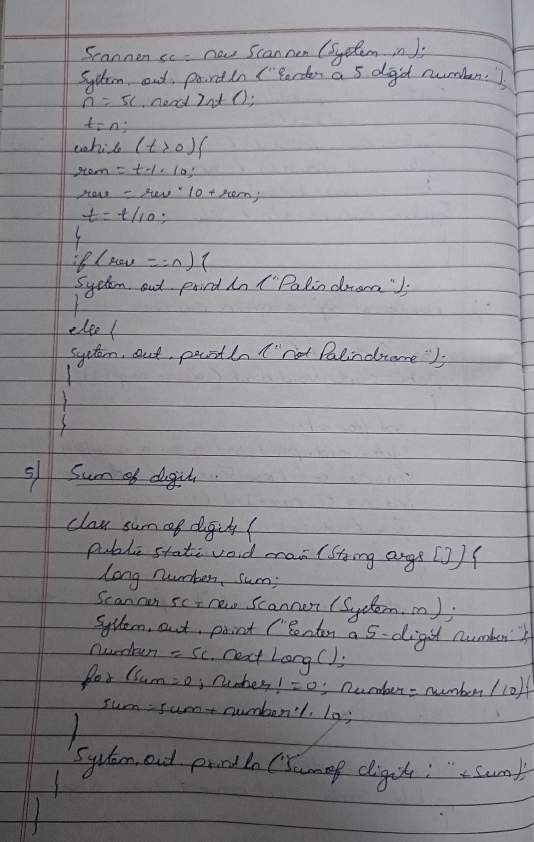 Scanner sc = new Scanner (System.in);
System.out.println ("Eenter a 5 digit number:");
n = sc.nextInt ();
t=n;
while (t>0){
rem = t%10;
rev = rev*10+rem;
t = t/10;
}
if (rev ==n) {
System.out.println ("Palindrome");
}
else {
System.out.println ("not Palindrome");
}
}
}
5) Sum of digits.
class sum of digits {
public static void main (String args []) {
long number, sum;
Scanner sc = new Scanner (System.in);
System.out.print ("Eenter a 5-digit number:");
number = sc.nextLong ();
for (sum=0; number!=0; number=number/10){
sum=sum+number%10;
}
System.out.println ("Sum of digits: "+sum);
}
}